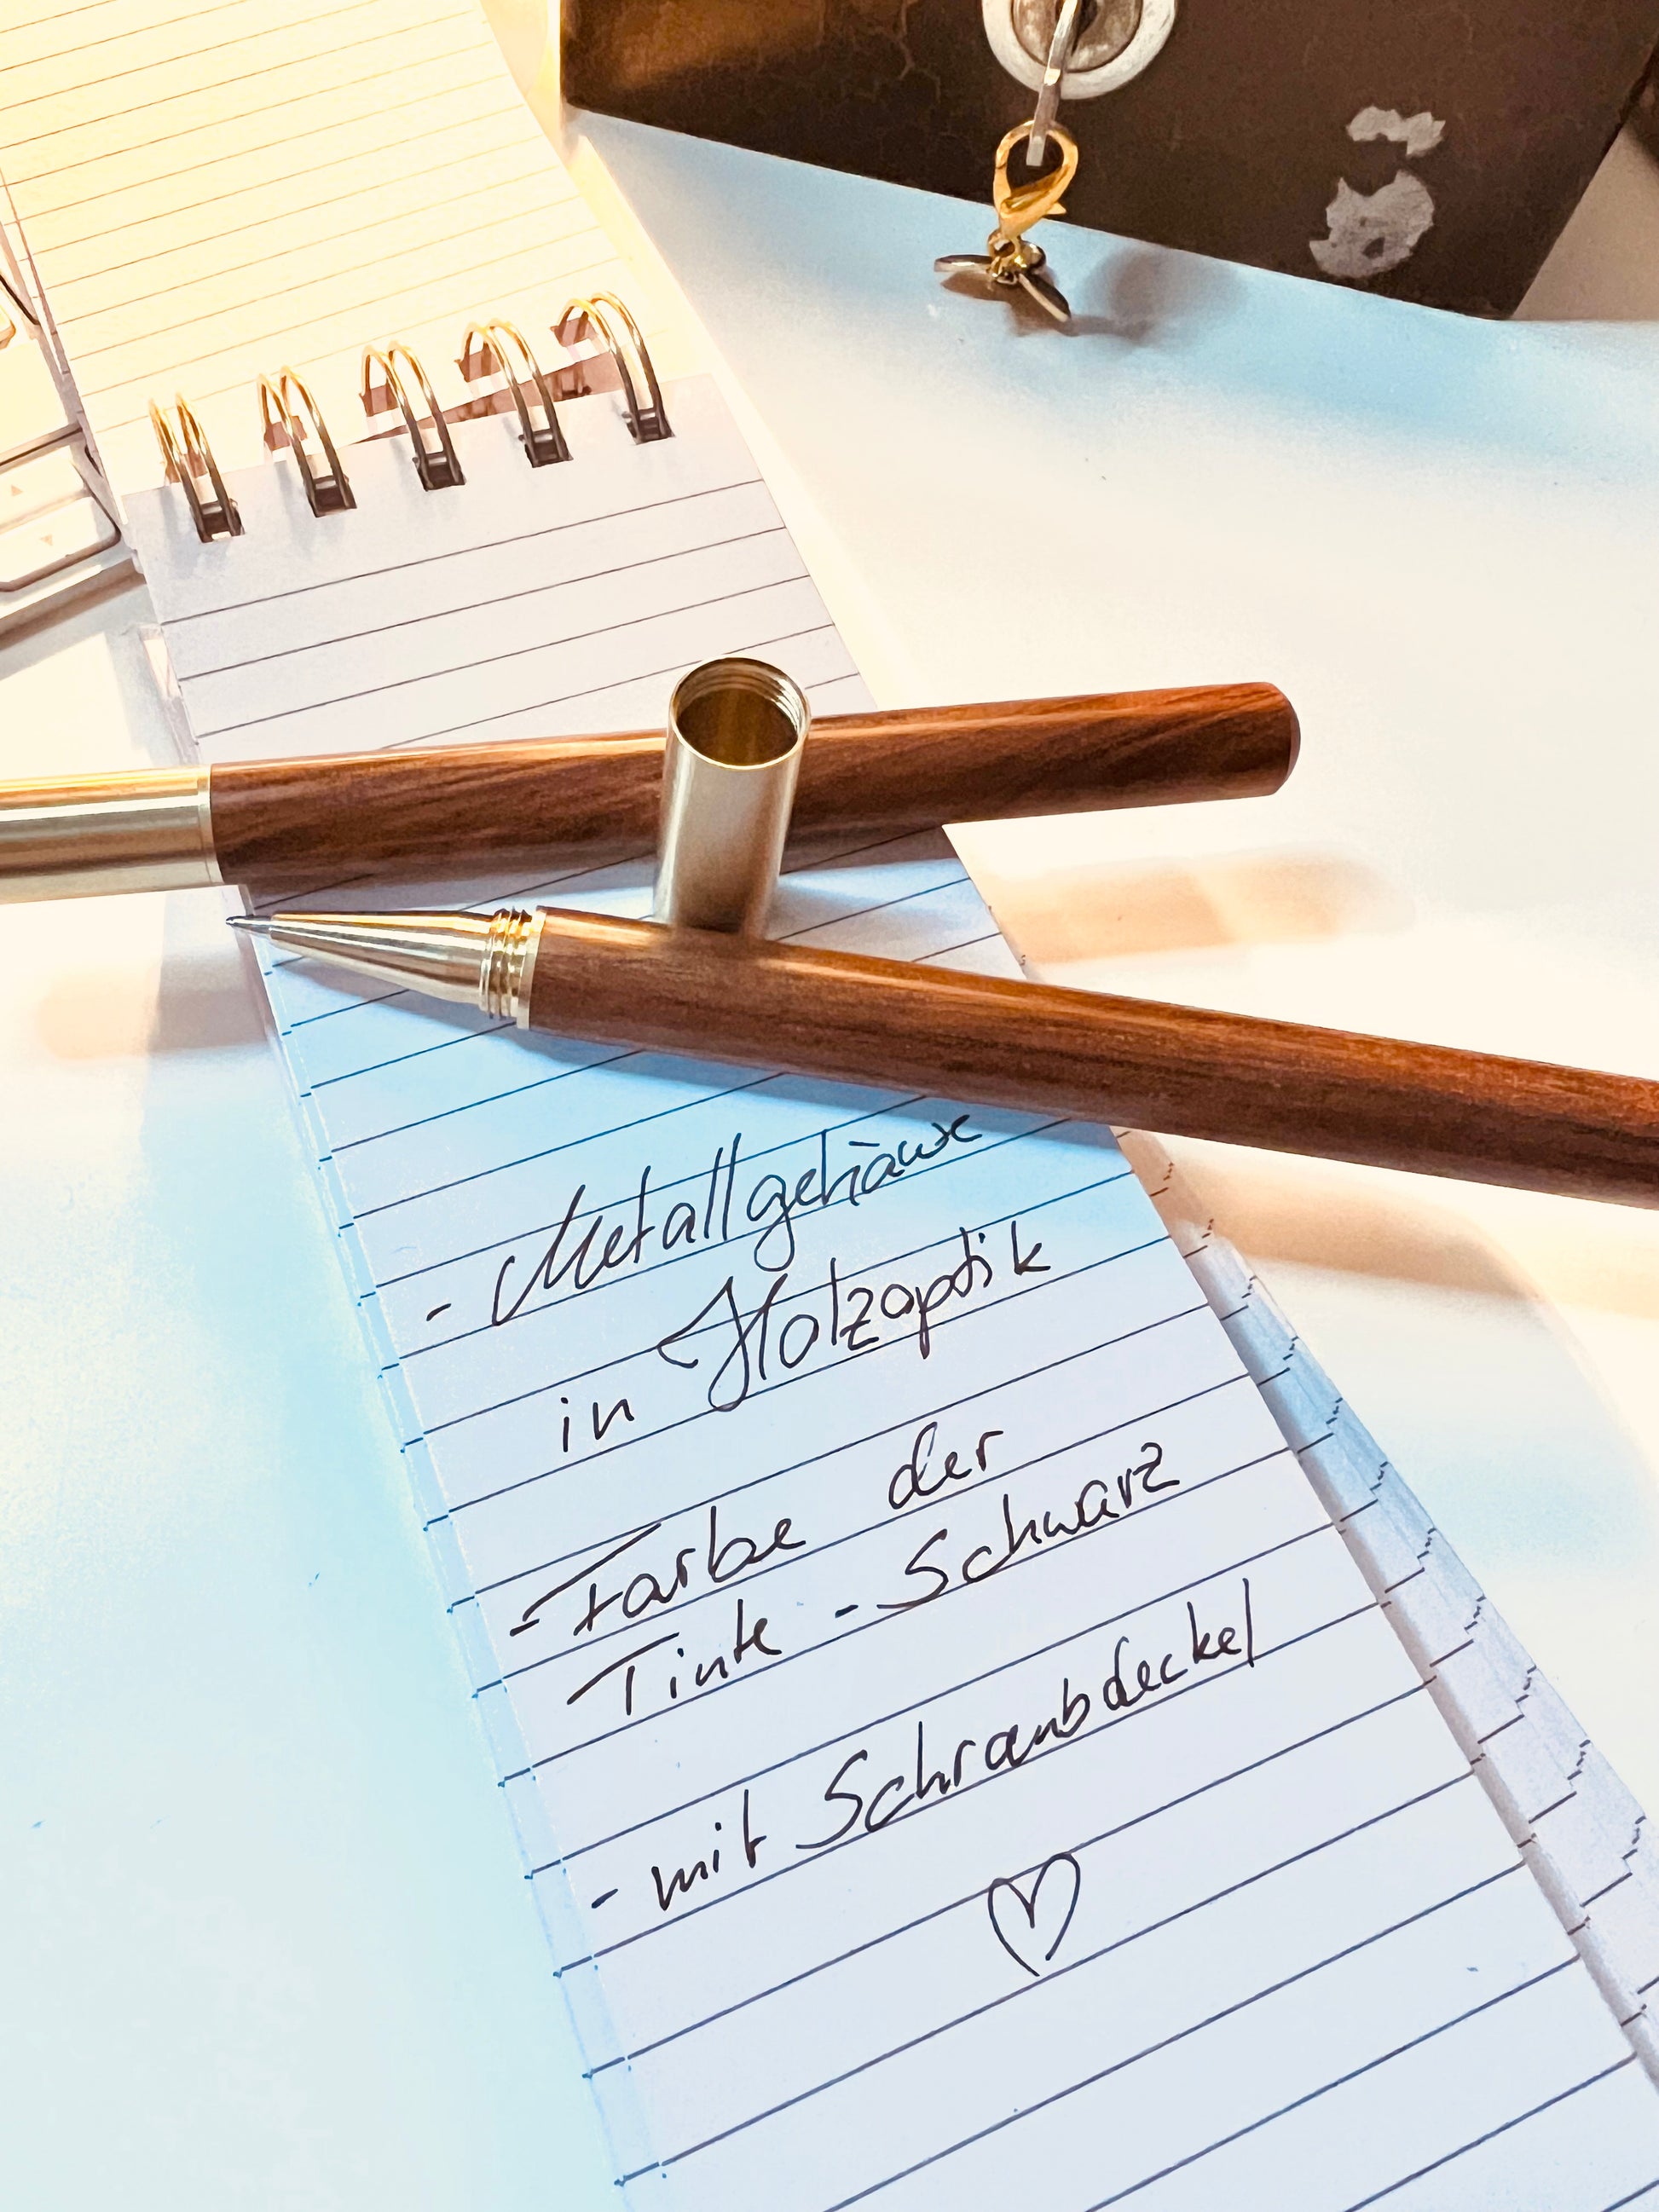 - Metallgehäuse
in Holzoptik
- Farbe der
Tinte - Schwarz
- mit Schraubdeckel